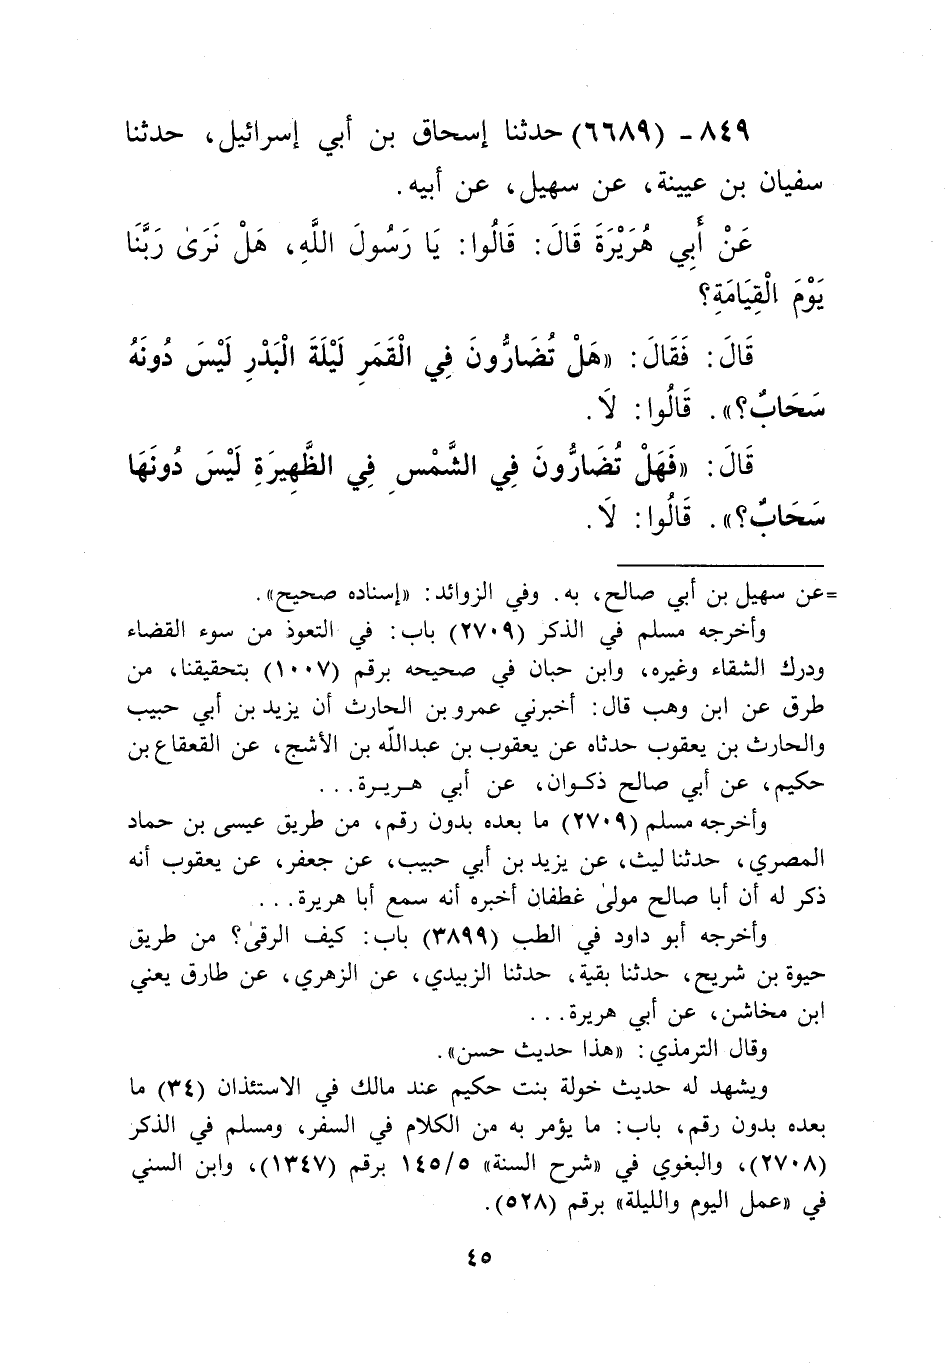 ٨٤٩ - (٦٦٨٩) حدثنا إسحاق بن أبي إسرائيل، حدثنا
سفيان بن عيينة، عن سهيل، عن أبيه.
عَنْ أَبِي هُرَيْرَةَ قَالَ: قَالُوا: يَا رَسُولَ اللَّهِ، هَلْ نَرَىٰ رَبَّنَا
يَوْمَ الْقِيَامَةِ؟
قَالَ: فَقَالَ: «هَلْ تُضَارُّونَ فِي الْقَمَرِ لَيْلَةَ الْبَدْرِ لَيْسَ دُونَهُ
سَحَابٌ؟». قَالُوا: لَا.
قَالَ: «فَهَلْ تُضَارُّونَ فِي الشَّمْسِ فِي الظَّهِيرَةِ لَيْسَ دُونَهَا
سَحَابٌ؟». قَالُوا: لَا.
=عن سهيل بن أبي صالح، به. وفي الزوائد: «إسناده صحيح».
وأخرجه مسلم في الذكر (٢٧٠٩) باب: في التعوذ من سوء القضاء
ودرك الشقاء وغيره، وابن حبان في صحيحه برقم (١٠٠٧) بتحقيقنا، من
طرق عن ابن وهب قال: أخبرني عمرو بن الحارث أن يزيد بن أبي حبيب
والحارث بن يعقوب حدثاه عن يعقوب بن عبداللّه بن الأشج، عن القعقاع بن
حكيم، عن أبي صالح ذكوان، عن أبي هريرة...
وأخرجه مسلم (٢٧٠٩) ما بعده بدون رقم، من طريق عيسى بن حماد
المصري، حدثنا ليث، عن يزيد بن أبي حبيب، عن جعفر، عن يعقوب أنه
ذكر له أن أبا صالح مولىٰ غطفان أخبره أنه سمع أبا هريرة...
وأخرجه أبو داود في الطب (٣٨٩٩) باب: كيف الرقىٰ؟ من طريق
حيوة بن شريح، حدثنا بقية، حدثنا الزبيدي، عن الزهري، عن طارق يعني
ابن مخاشن، عن أبي هريرة...
وقال الترمذي: «هذا حديث حسن».
ويشهد له حديث خولة بنت حكيم عند مالك في الاستئذان (٣٤) ما
بعده بدون رقم، باب: ما يؤمر به من الكلام في السفر، ومسلم في الذكر
(٢٧٠٨)، والبغوي في «شرح السنة» ١٤٥/٥ برقم (١٣٤٧)، وابن السني
في «عمل اليوم والليلة» برقم (٥٢٨).
٤٥